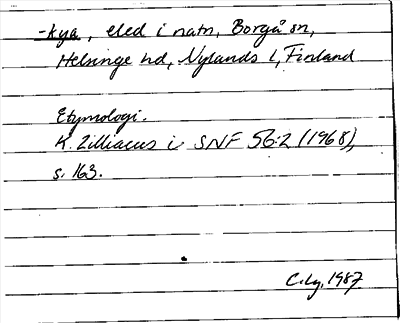 -kya, eled i natn, Borgå sn,
Helsinge hd, Nylands l, Finland
Etymologi.
K. Zilliacus i SNF 56:2 (1968),
s. 163.
C. Ly, 1987